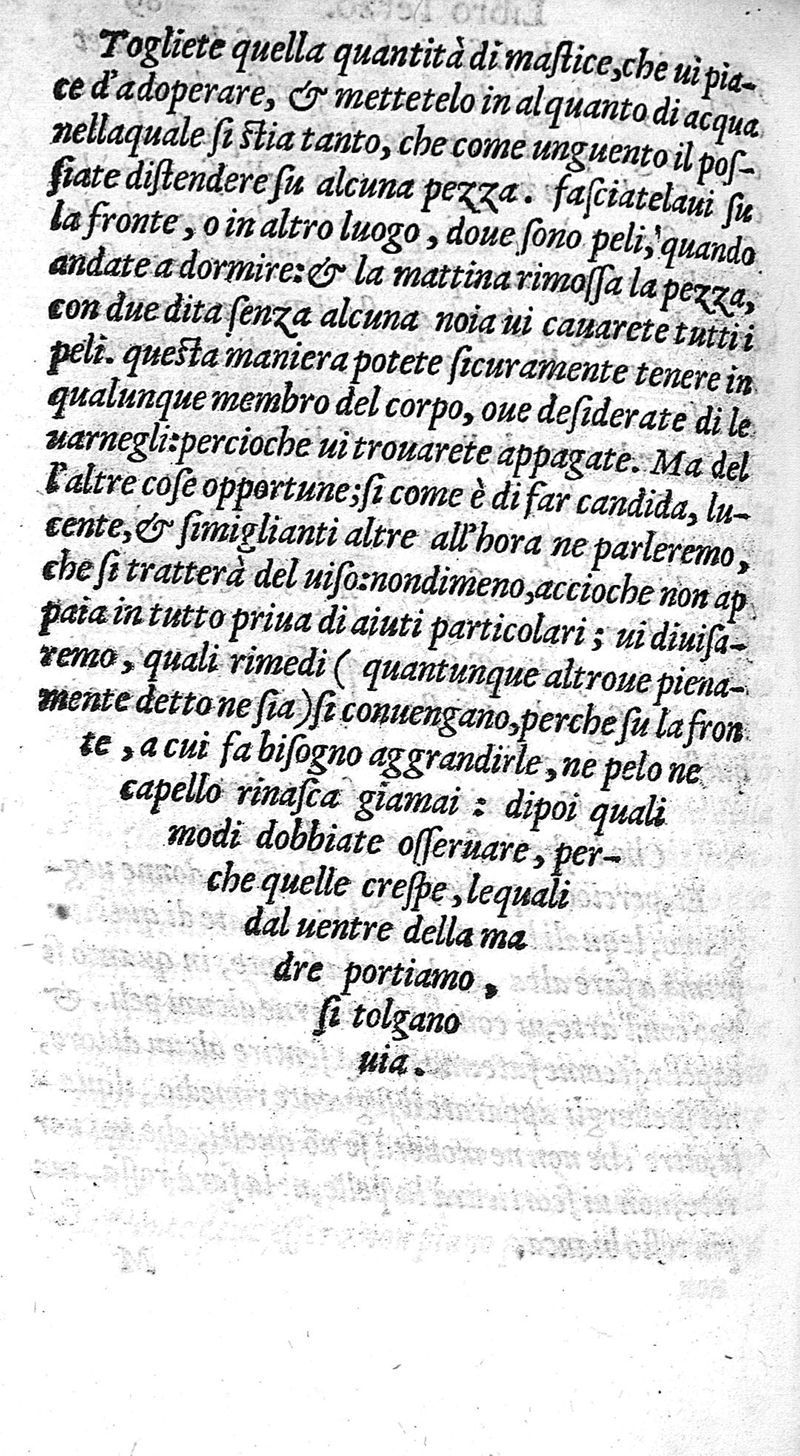 Togliete quella quantità di maſtice, che ui pia-
ce d'adoperare, & mettetelo in alquanto di acqua
nellaquale ſi ſtia tanto, che come unguento il poſ-
ſiate diſtendere ſu alcuna pezza. faſciatelaui ſu
la fronte, o in altro luogo, doue ſono peli, quando
andate a dormire: & la mattina rimoſſa la pezza,
con due dita ſenza alcuna noia ui cauarete tutti i
peli. queſta maniera potete ſicuramente tenere in
qualunque membro del corpo, oue deſiderate di le
uarnegli: percioche ui trouarete appagate. Ma del
l'altre coſe opportune; ſi come è di far candida, lu-
cente, & ſimiglianti altre all'hora ne parleremo,
che ſi tratterà del uiſo: nondimeno, accioche non ap
paia in tutto priua di aiuti particolari; ui diuiſa-
remo, quali rimedi ( quantunque altroue piena-
mente detto ne ſia) ſi conuengano, perche ſu la fron
te, a cui fa biſogno aggrandirle, ne pelo ne
capello rinaſca giamai : dipoi quali
modi dobbiate oſſeruare, per-
che quelle creſpe, lequali
dal uentre della ma
dre portiamo,
ſi tolgano
uia.